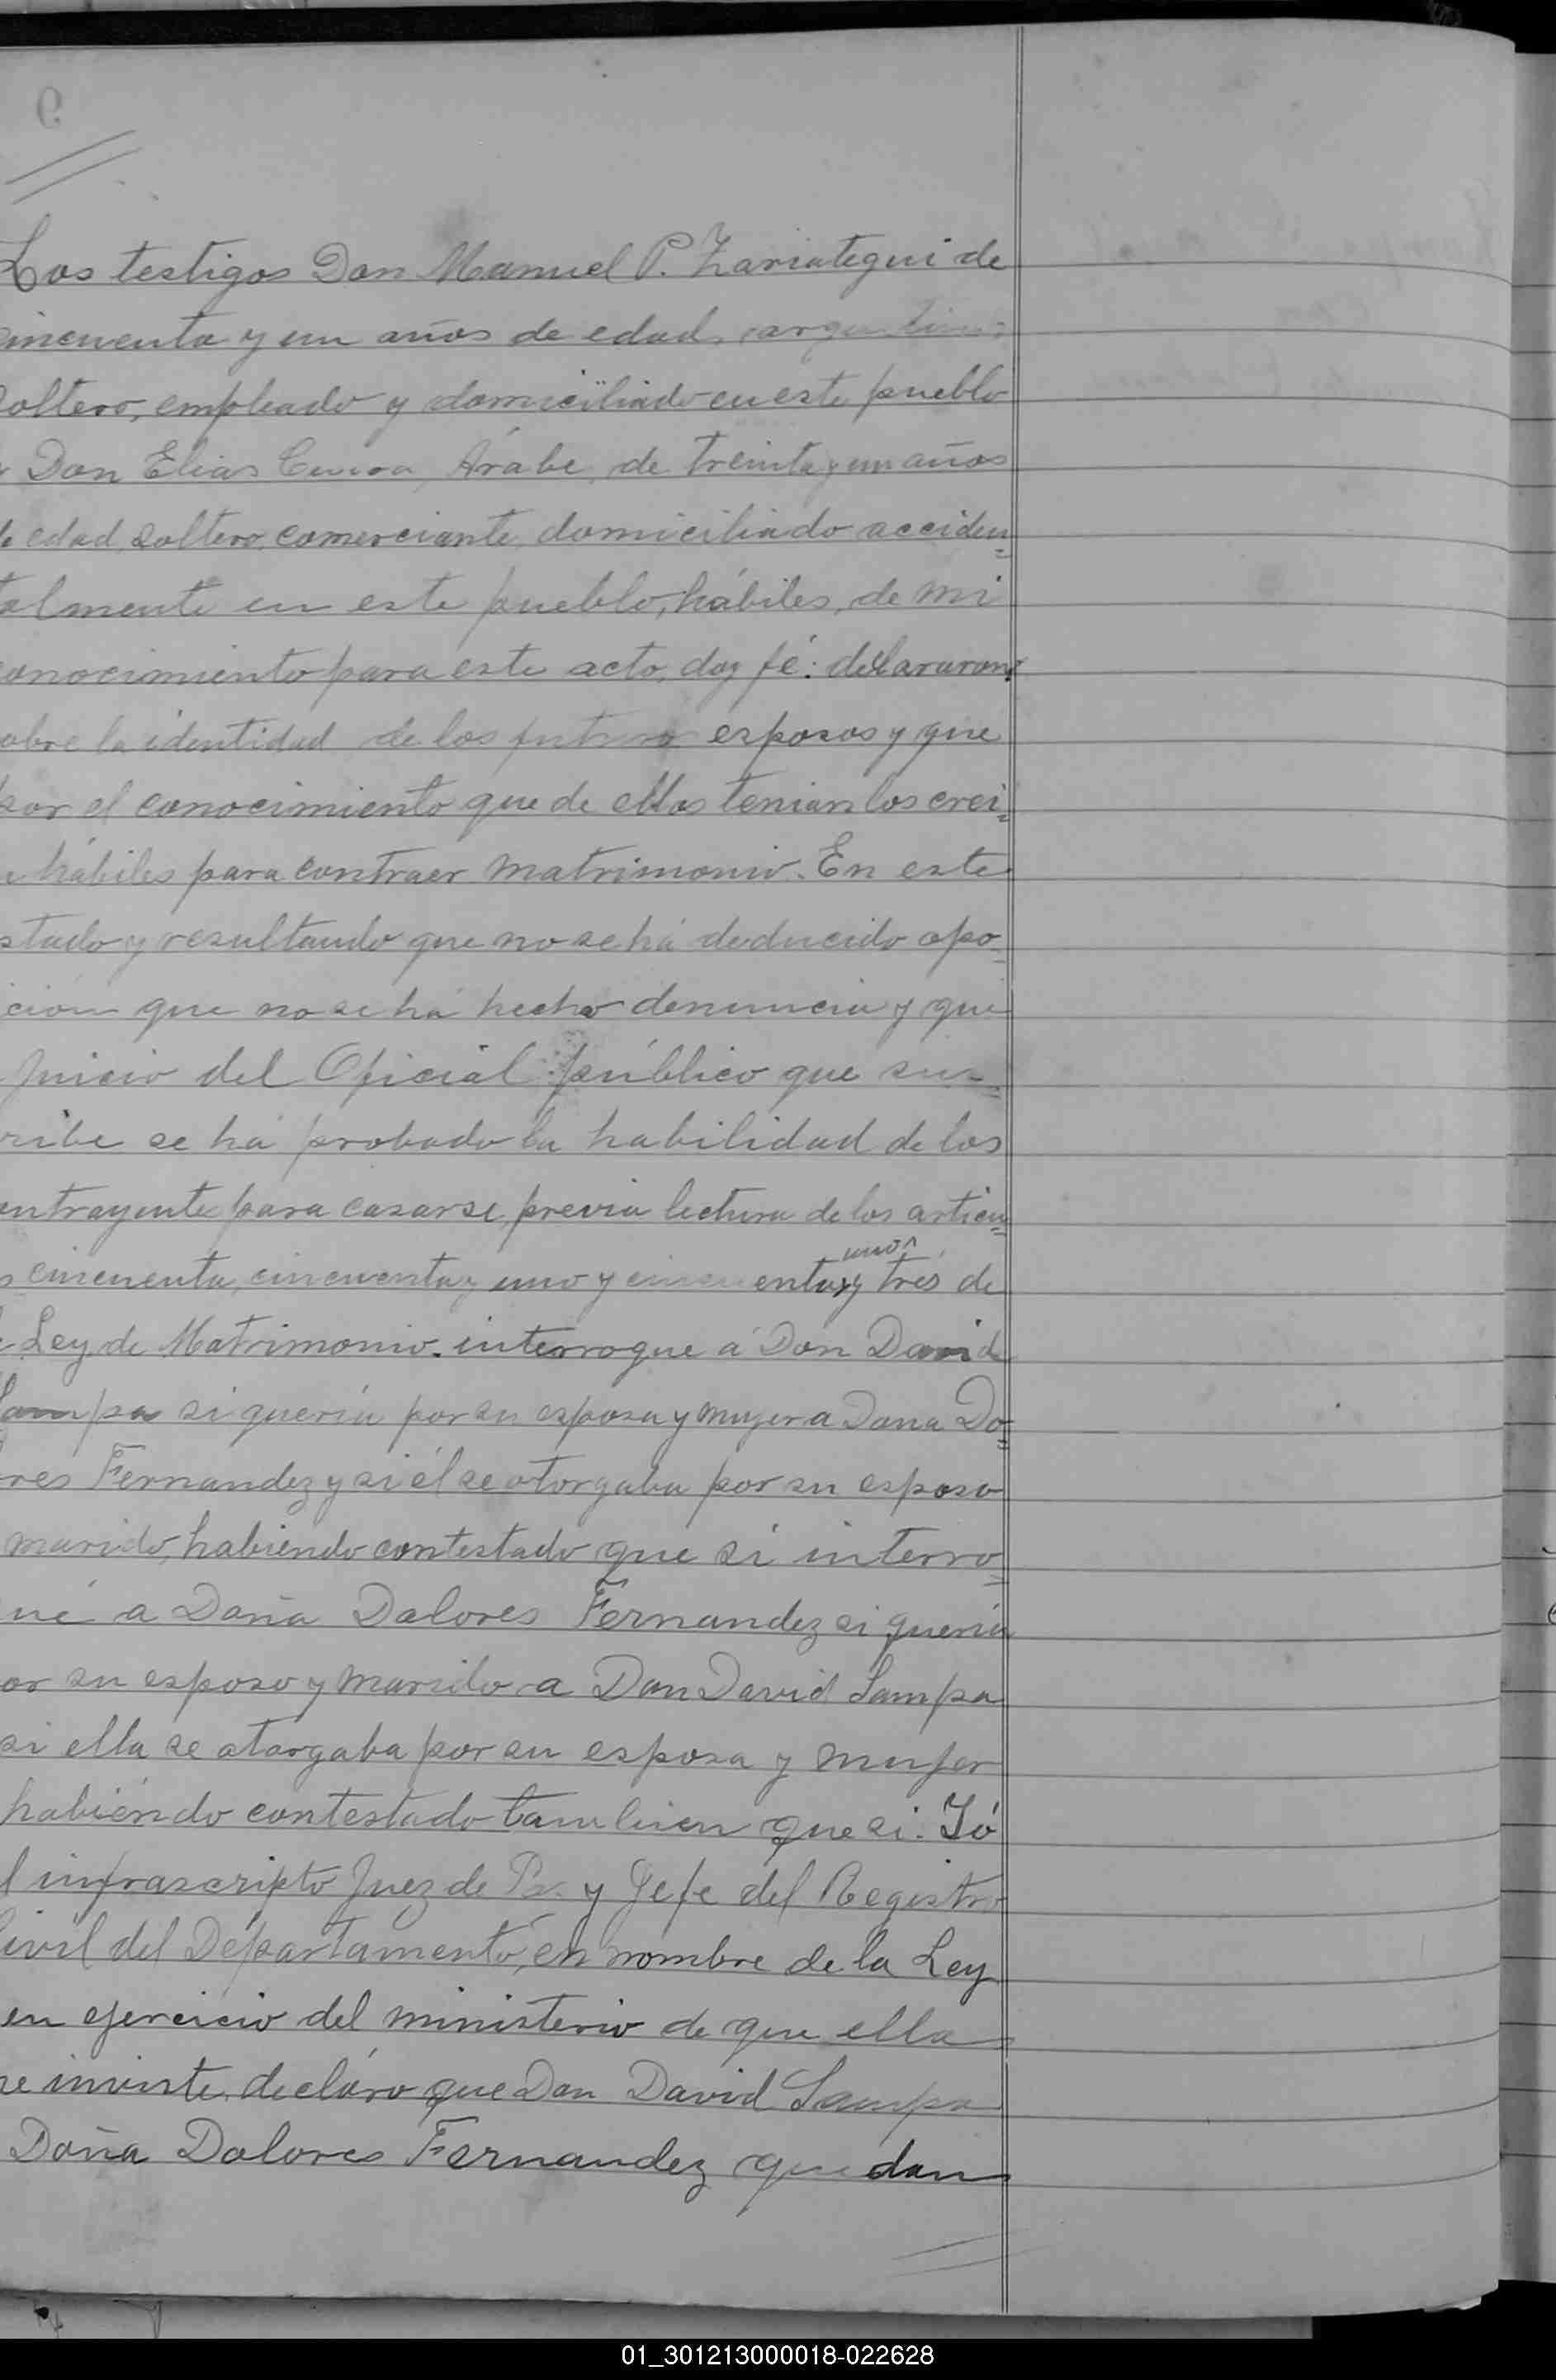 Los testigos Don Manuel P. Zariategui de
cincuenta y un años de edad, argentino,
soltero, empleado y domiciliado en este pueblo
y Don Elias, Árabe, de treinta y un años
de edad, soltero, comerciante, domiciliado acciden=
talmente en este pueblo, hábiles, de mi
conocimiento para este acto, doy fé: declararon
sobre la identidad de los futuros esposos y que
por el conocimiento que de ellos tenian los crei=
hábiles para contraer matrimonio. En este
estado y resultando que no se há deducido opo=
cion que no se há hecho denuncia y que
juicio del Oficial público que sus=
cribe se há probado la habilidad de los
contrayente para casarse, previa lectura de los articu=
los cincuenta, cincuenta y uno y cincuenta y tres de
la Ley de Matrimonio. interrogue a Don David
Sampa si queria por su esposa y muger a Dona Do=
lores Fernandez y si él se otorgaba por su esposo
marido, habiendo contestado que si interro=
gué a Doña Dolores Fernandez si queria
por su esposo y marido a Don David Sampa
si ella se otorgaba por su esposa y mujer
habiéndo contestado tambien que si. Yó
el infrascripto Juez de Paz y Jefe del Registro
Civil del Departamento, en nombre de la Ley
en ejercicio del ministerio de que ella
me inviste, declaro que Don David Sampa
Doña Dolores Fernandez quedan
01_301213000018-022628